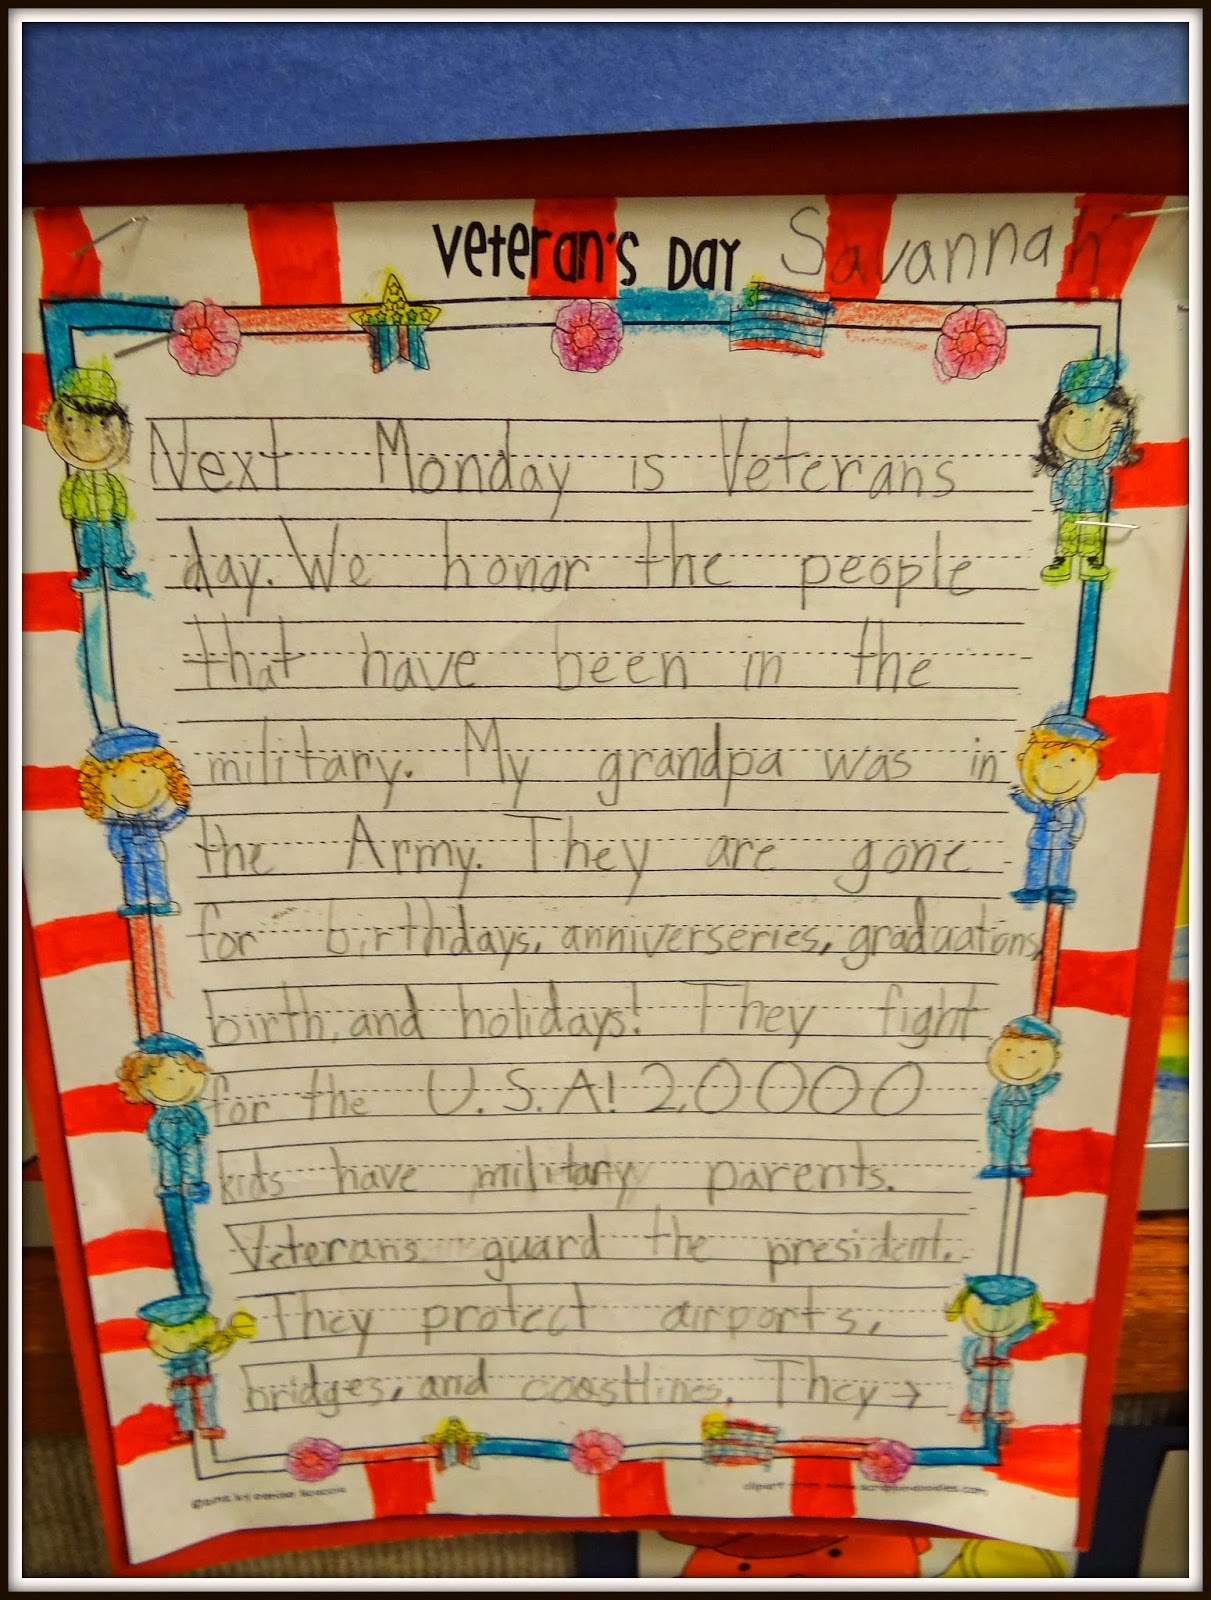 Veteran's Day Savannah
Next Monday is Veterans
day. We honor the people
that have been in the
military. My grandpa was in
the Army. They are gone
for birthdays, anniverseries, graduations,
birth, and holidays! They fight
for the U.S.A! 2,0000
kids have military parents.
Veterans guard the president.
They protect airports,
bridges, and coastlines. They →